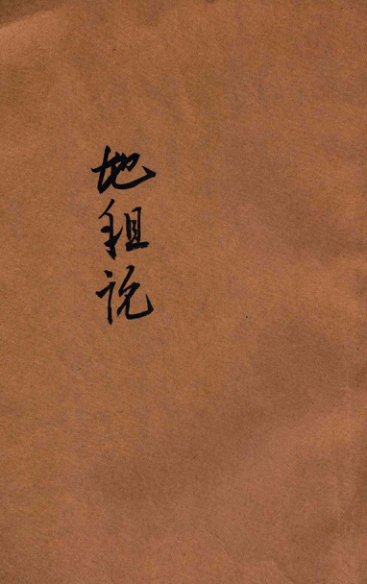 地租说